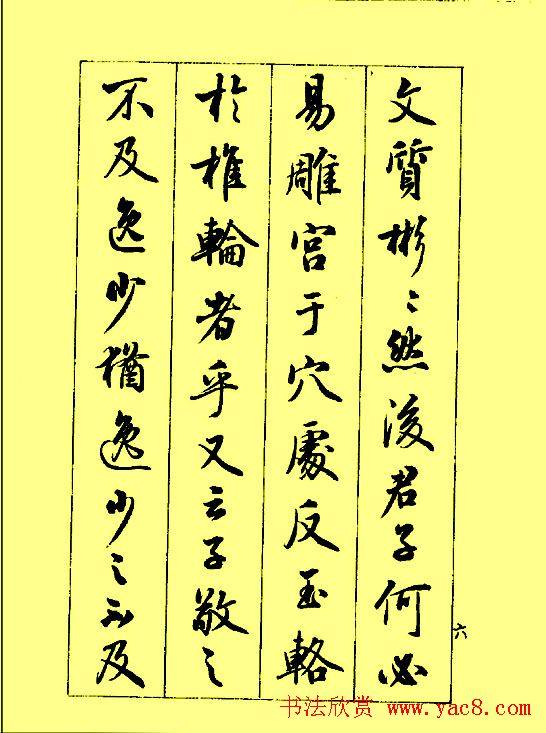 文質彬〻然後君子何必
易雕宮于穴處反玉輅
於椎輪者乎又云子敬之
不及逸少猶逸少之不及
六
书法欣赏 www.yac8.com